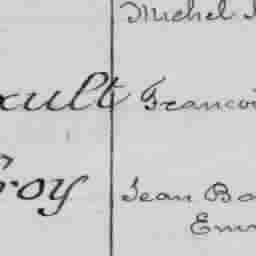 Michel
xult Francoi
roy Jean Ba
Em